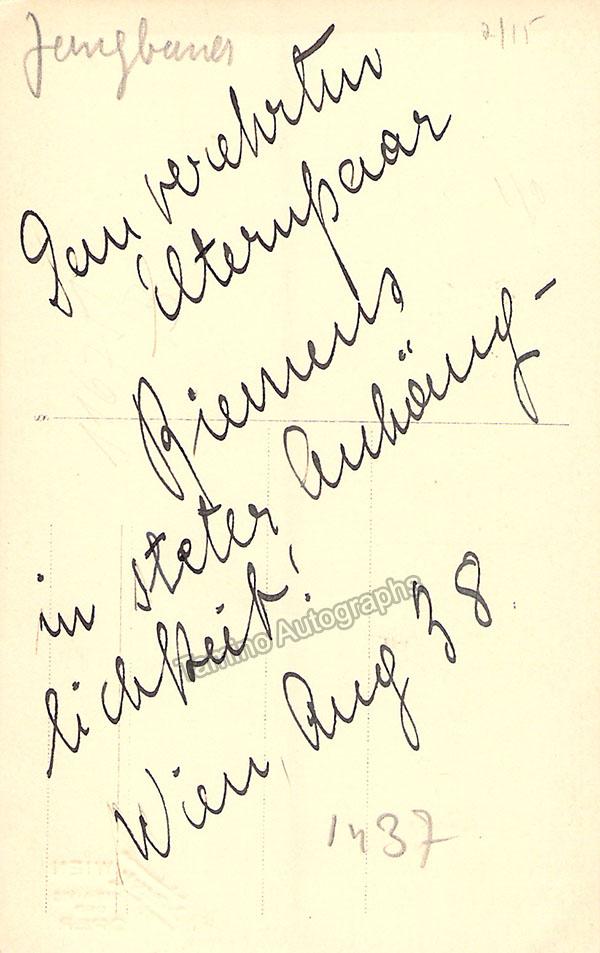 Jungbauer
2/15
Dem verehrten
Elternpaar
Biemens
in steter Anhäng-
lichkeit!
Wien, Aug 38
1437
Tamino Autographs